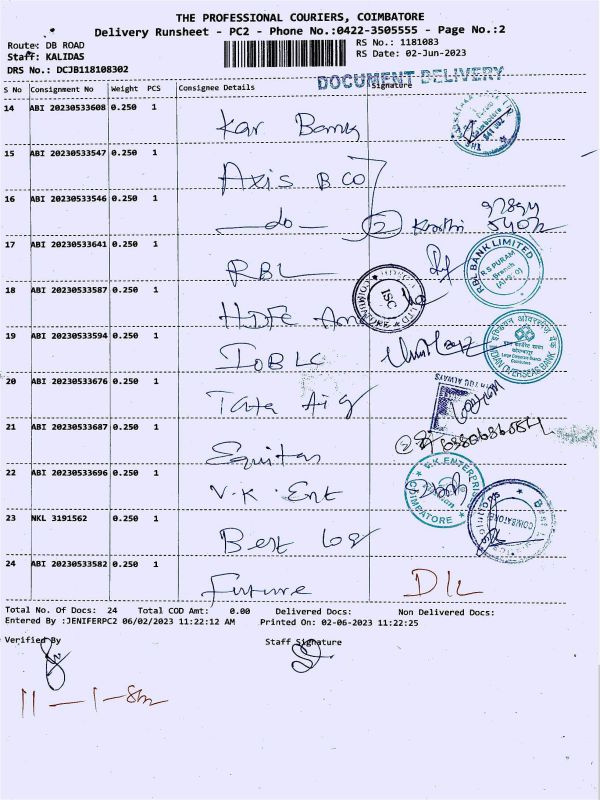 THE PROFESSIONAL COURIERS, COIMBATORE
Delivery Runsheet - PC2 - Phone No.:0422-3505555 - Page No.:2
Route: DB ROAD
RS No.: 1181083
Staff: KALIDAS
RS Date: 02-Jun-2023
DRS No.: DCJB118108302
DOCUMENT DELIVERY
S No Consignment No Weight PCS Consignee Details Signature
14 ABI 20230533608 0.250 1 Kar Bank
15 ABI 20230533547 0.250 1 Axis B CO
16 ABI 20230533546 0.250 1 do 2
17 ABI 20230533641 0.250 1 RBL
RBL BANK LIMITED
R S PURAM
Branch
18 ABI 20230533587 0.250 1 HDFC
ISC
19 ABI 20230533594 0.250 1 IOB LC
इण्डियन ओवरसीज़ बैंक
INDIAN OVERSEAS BANK
20 ABI 20230533676 0.250 1 Tata Aig
WITH YOU ALWAYS
21 ABI 20230533687 0.250 1 Equitas
22 ABI 20230533696 0.250 1 V.K. Ent
V.K ENTERPRIS
COIMBATORE
23 NKL 3191562 0.250 1 Best log
COIMBATORE
24 ABI 20230533582 0.250 1 Future D/L
Total No. Of Docs: 24 Total COD Amt: 0.00 Delivered Docs: Non Delivered Docs:
Entered By :JENIFERPC2 06/02/2023 11:22:12 AM Printed On: 02-06-2023 11:22:25
Verified By Staff Signature
11 - 1 -